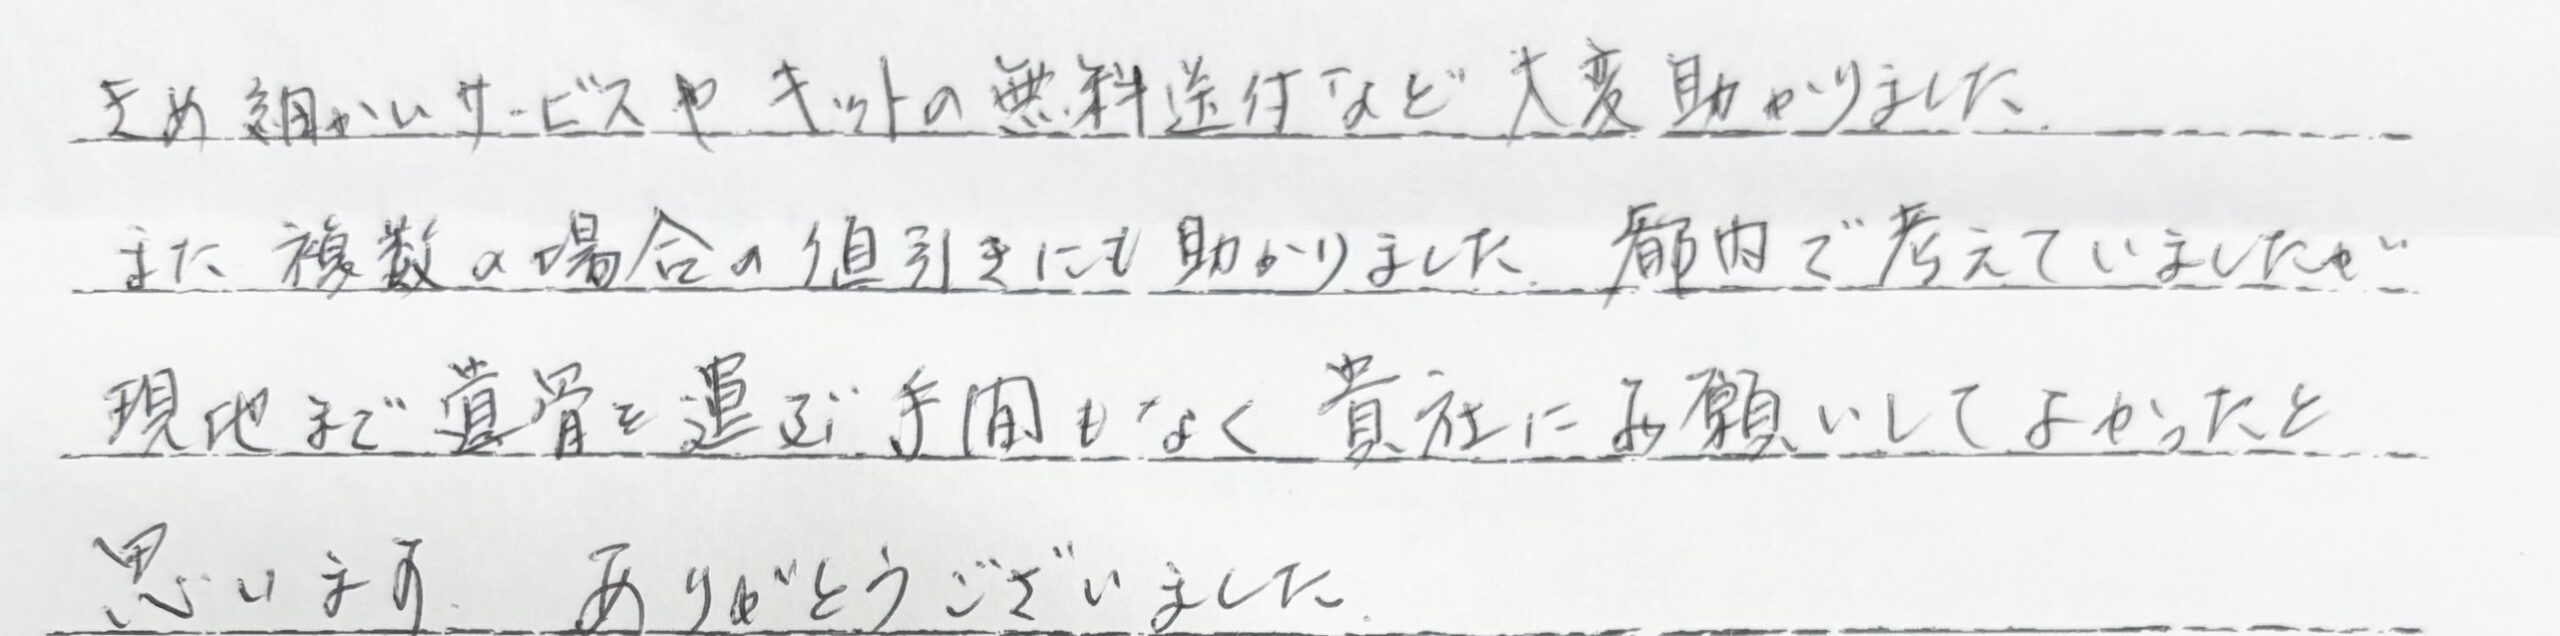 きめ細かいサービスやキットの無料送付など大変助かりました.
また複数の場合の値引きにも助かりました.都内で考えていましたが
現地まで遺骨を運ぶ手間もなく貴社にお願いしてよかったと
思います.ありがとうございました.